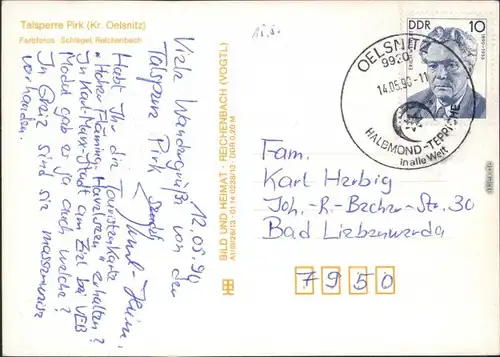 Talsperre Pirk (Kr. Oelsnitz)
Farbfotos Schlegel, Reichenbach
12.05.90
Viele Wandergrüße von der
Talsperre Pirk sendet
Karl-Heinz
Habt Ihr die Touristenkarte
"Hoher Fläming, Havelseen" erhalten?
In Karl-Marx-Stadt am Ziel bei VEB
Modul gab es ja auch welche?
In Greiz sind sie massenweise
vorhanden.
BILD UND HEIMAT · REICHENBACH (VOGTL)
A1/859/26/13 · 01 14 0238/13 · DDR 0,20 M
DDR 10
OELSNITZ
9920
14.05.90-11
HALBMOND-TEPPICHE
in alle Welt
Fam.
Karl Herbig
Joh.-R.-Becher-Str. 30
Bad Liebenwerda
7950